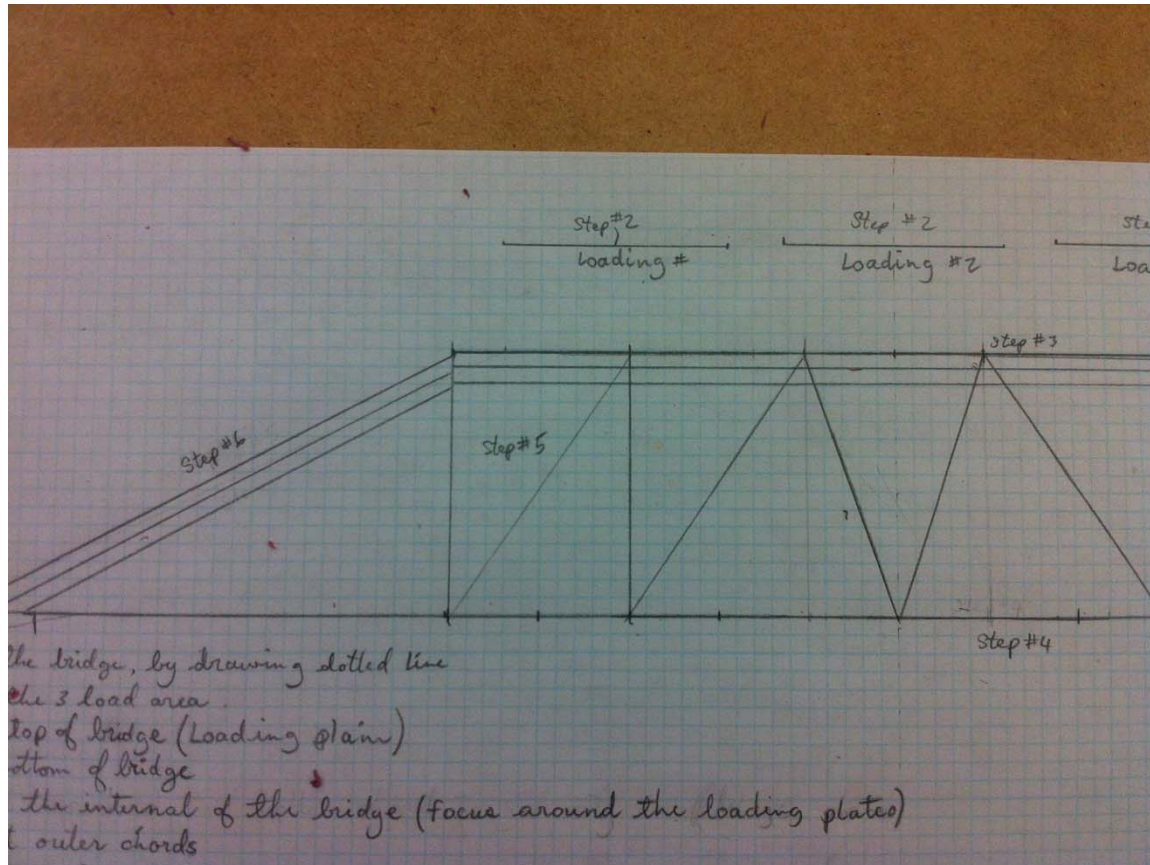 Step #2
Step #2
Loading #
Loading #2
Step #3
Step #6
Step #5
Step #4
the bridge, by drawing dotted line
the 3 load area.
top of bridge (Loading plain)
ottom of bridge
the internal of the bridge (focus around the loading plates)
outer chords